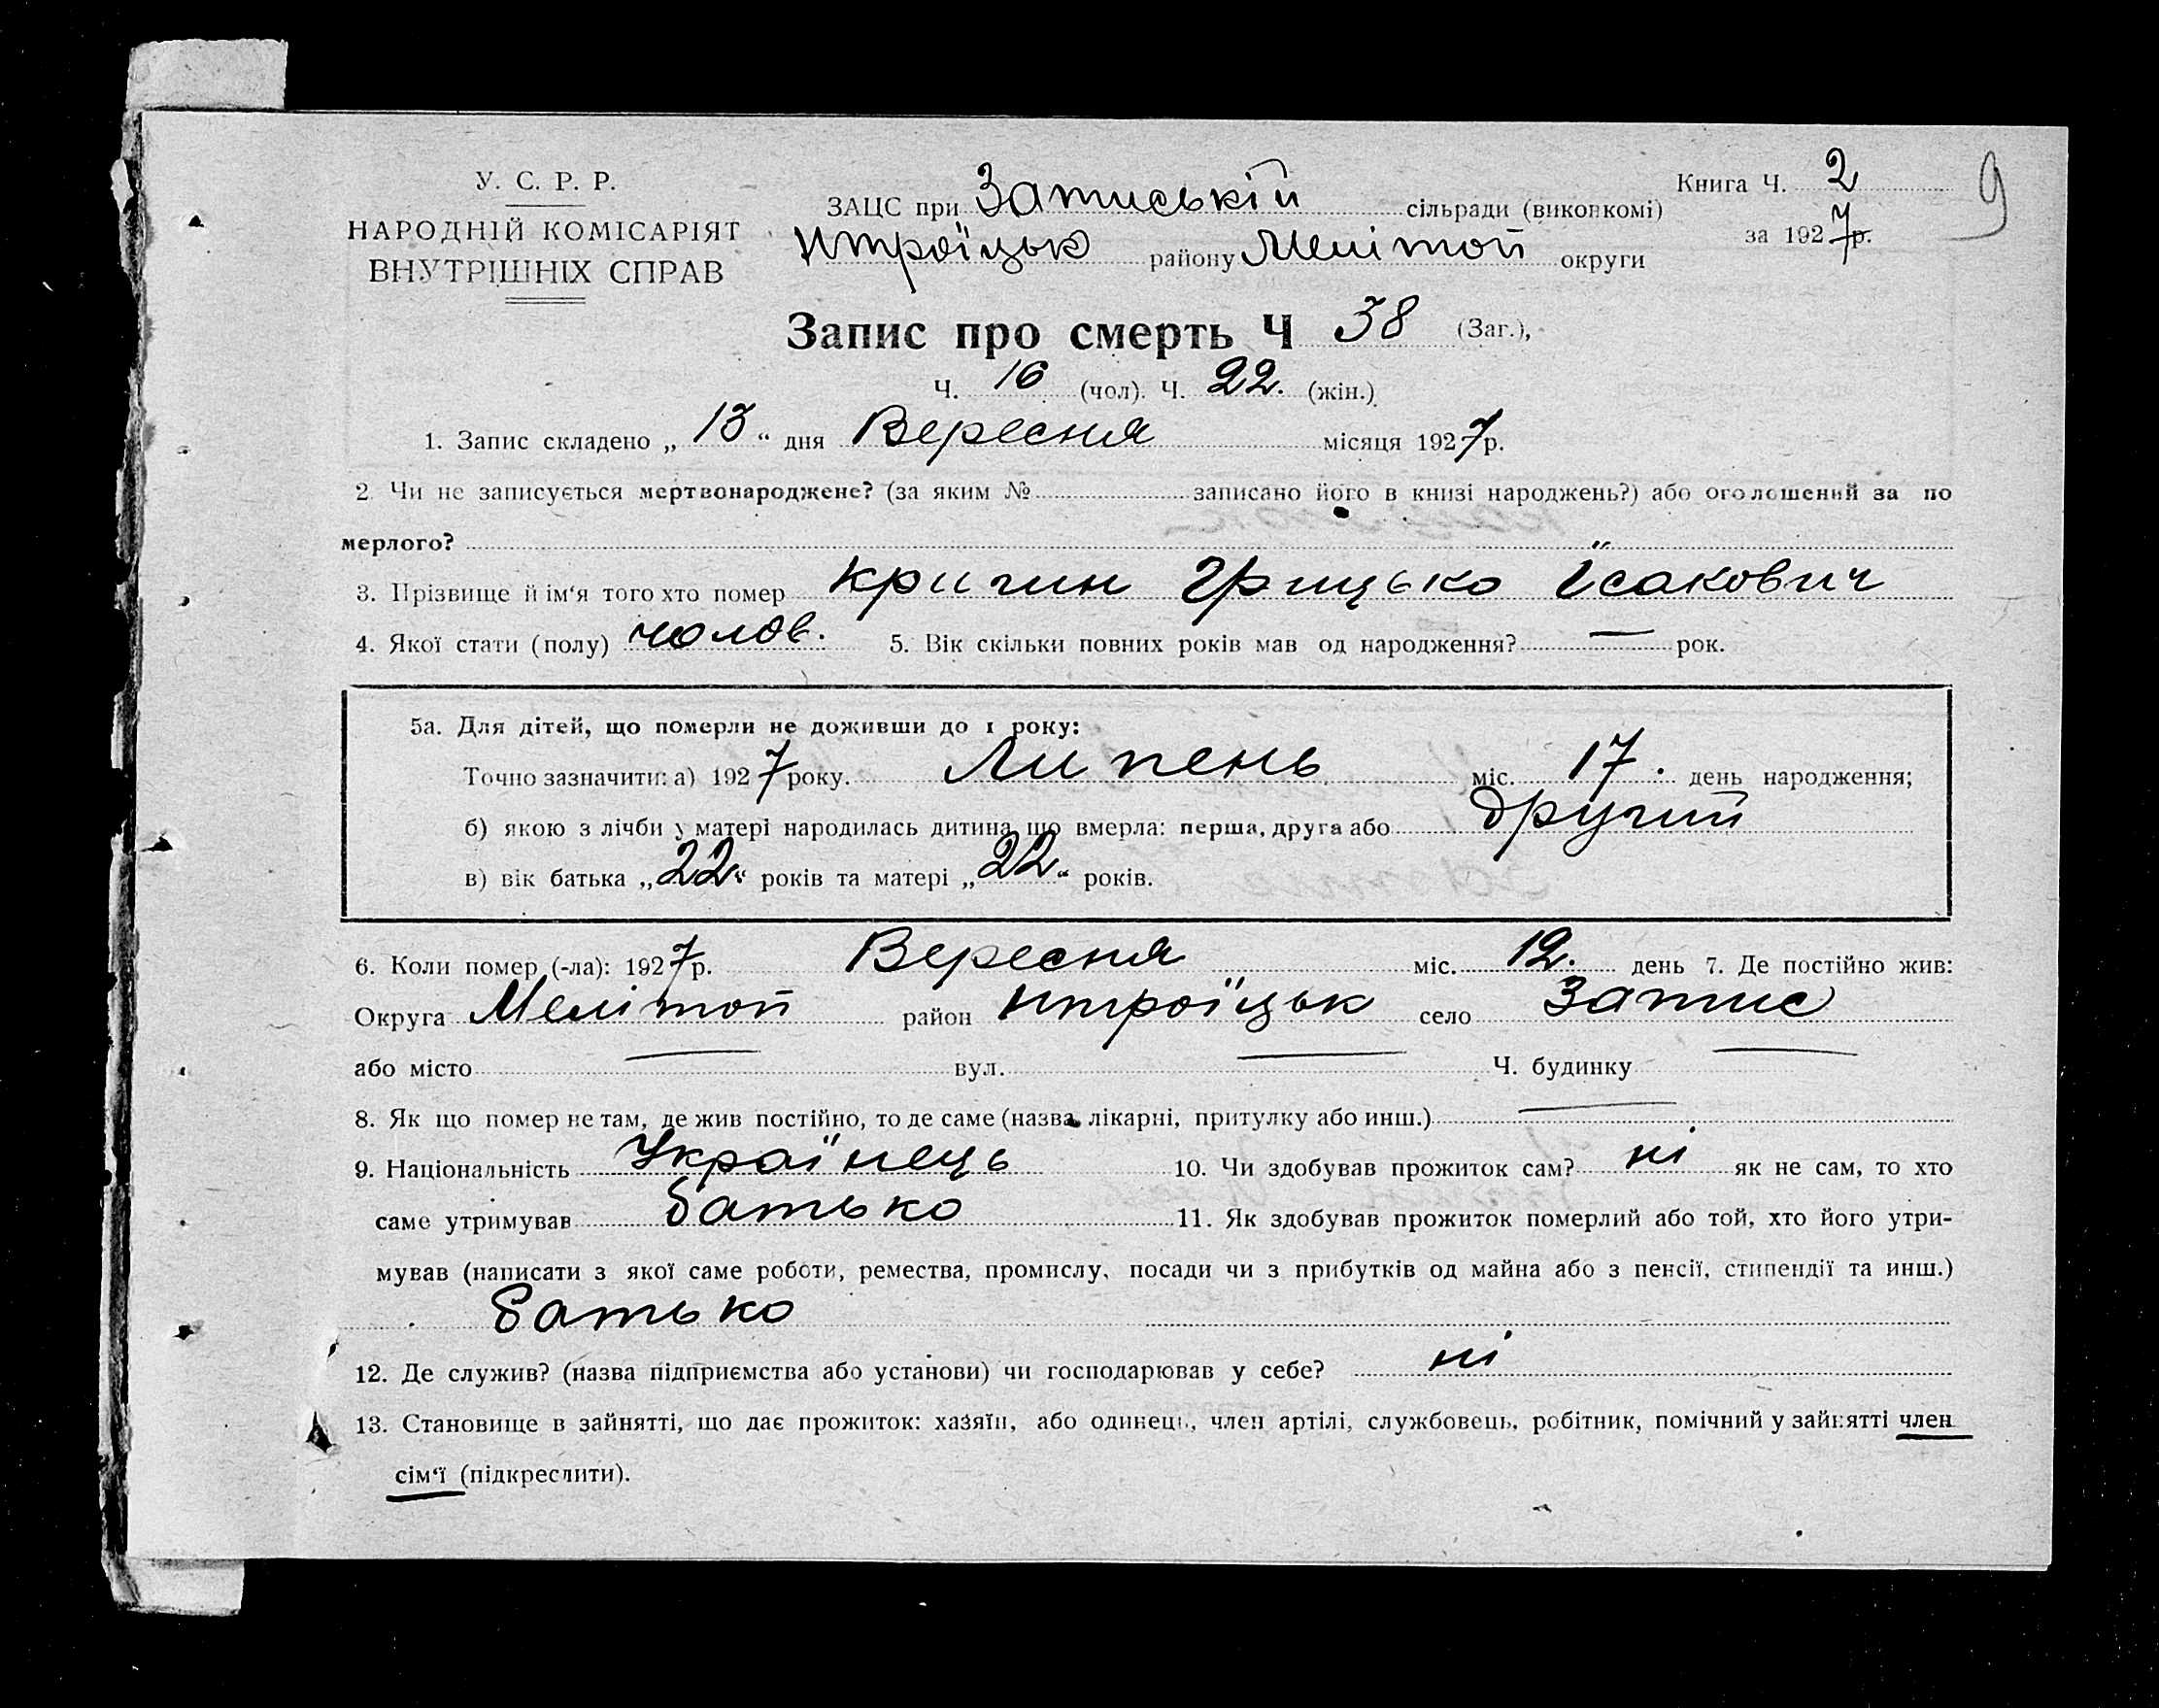 9
У. С. Р. Р.
НАРОДНІЙ КОМІСАРІЯТ
ВНУТРІШНІХ СПРАВ
ЗАЦС при Затиській сільради (виконкомі)
Нтроїцьк району Меліtop округи
Книга Ч. 2
за 1927р.
Запис про смерть Ч 38 (Заг.),
Ч. 16 (чол). Ч. 22. (жін.)
1. Запис складено „ 13 “ дня Вересня місяця 1927р.
2. Чи не записується мертвонароджене? (за яким № записано його в книзі народжень?) або оголошений за по
мерлого?
3. Прізвище й ім‘я того хто помер Кричин Грицько Ісакович
4. Якої стати (полу) чолов. 5. Вік скільки повних років мав од народження? — рок.
5а. Для дітей, що померли не доживши до 1 року:
Точно зазначити: а) 1927 року. Липень міс. 17. день народження;
б) якою з лічби у матері народилась дитина що вмерла: перша, друга або другий
в) вік батька „22“ років та матері „22“ років.
6. Коли помер (-ла): 1927р. Вересня міс. 12. день 7. Де постійно жив:
Округа Мелітоп район Нтроїцьк село Затис
або місто — вул. — Ч. будинку —
8. Як що помер не там, де жив постійно, то де саме (назва лікарні, притулку або инш.) —
9. Національність Українець 10. Чи здобував прожиток сам? ні як не сам, то хто
саме утримував батько 11. Як здобував прожиток померлий або той, хто його утри-
мував (написати з якої саме роботи, ремества, промислу, посади чи з прибутків од майна або з пенсії, стипендії та инш.)
батько
12. Де служив? (назва підприємства або установи) чи господарював у себе? ні
13. Становище в зайнятті, що дає прожиток: хазяїн, або одинець, член артілі, службовець, робітник, помічний у зайнятті член
сім‘ї (підкреслити).